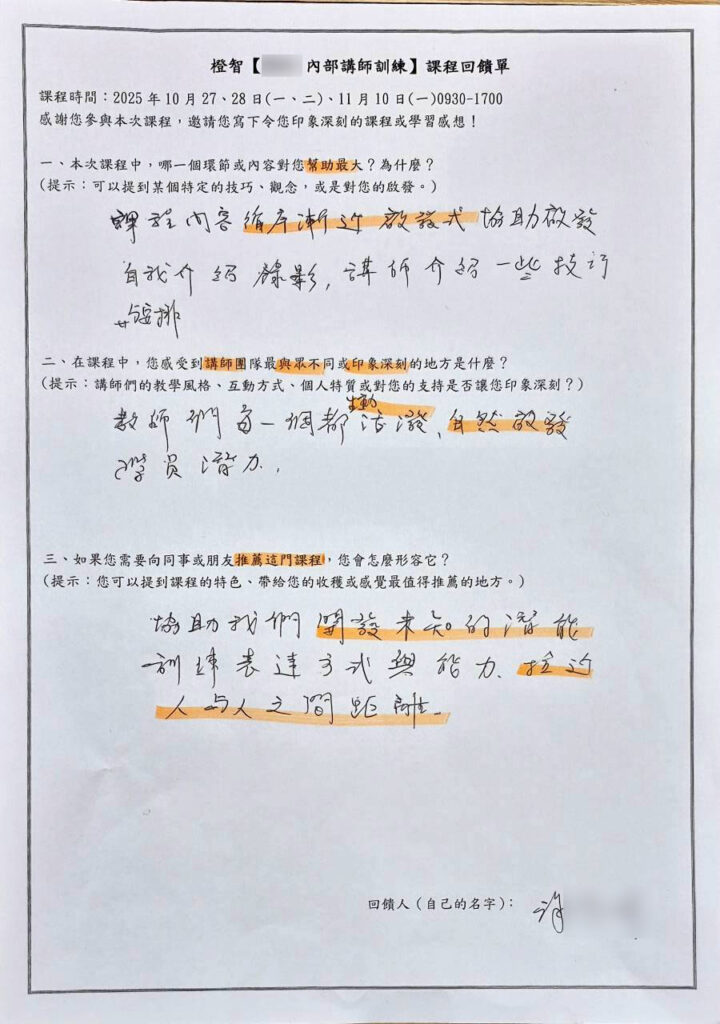 橙智【 內部講師訓練】課程回饋單
課程時間：2025 年 10 月 27、28 日(一、二)、11 月 10 日(一)0930-1700
感謝您參與本次課程，邀請您寫下令您印象深刻的課程或學習感想！
一、本次課程中，哪一個環節或內容對您幫助最大？為什麼？
(提示：可以提到某個特定的技巧、觀念，或是對您的啟發。)
課程內容循序漸近 啟發式 協助啟發
自我介紹 錄影, 講師介紹一些技巧
安排
二、在課程中，您感受到講師團隊最與眾不同或印象深刻的地方是什麼？
(提示：講師們的教學風格、互動方式、個人特質或對您的支持是否讓您印象深刻？)
教師們每一個都生動活潑、自然啟發
學員潛力.
三、如果您需要向同事或朋友推薦這門課程，您會怎麼形容它？
(提示：您可以提到課程的特色、帶給您的收穫或感覺最值得推薦的地方。)
協助我們開發未知的潛能
訓練表達方式與能力. 拉近
人与人之間距離.
回饋人（自己的名字）： 許